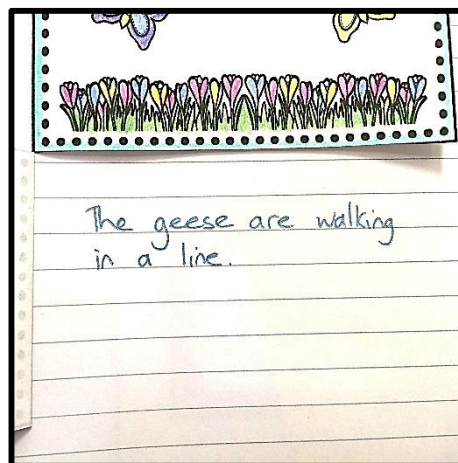 The geese are walking
in a line.